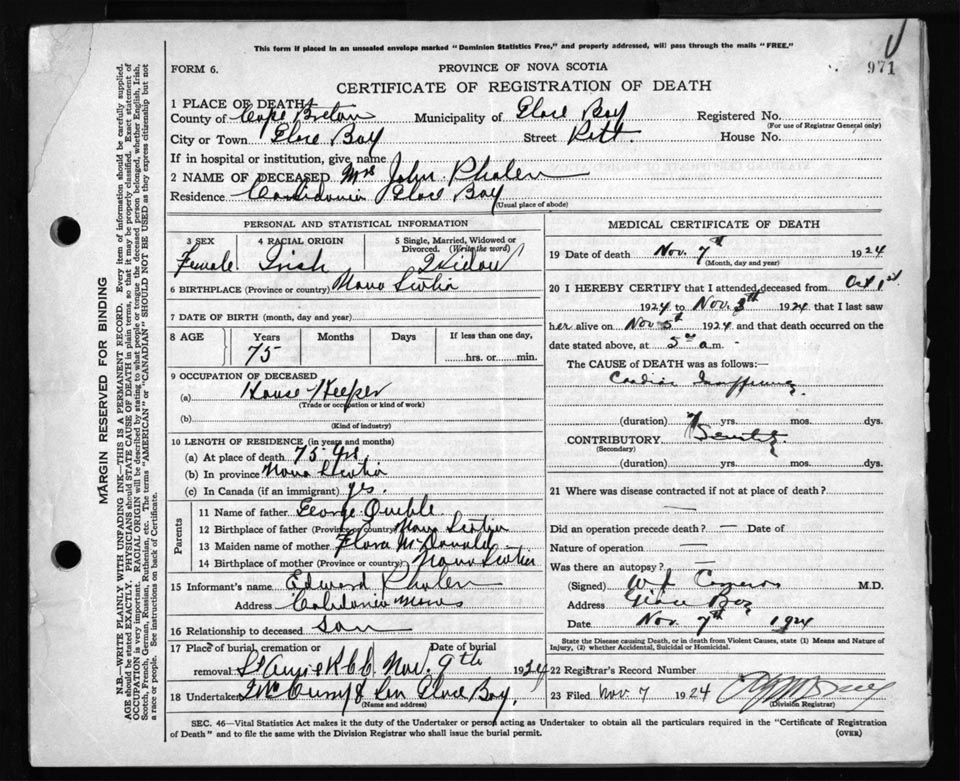 This form if placed in an unsealed envelope marked "Dominion Statistics Free," and properly addressed, will pass through the mails "FREE."
971
FORM 6.
PROVINCE OF NOVA SCOTIA
CERTIFICATE OF REGISTRATION OF DEATH
1 PLACE OF DEATH
County of Cape Breton Municipality of Glace Bay Registered No.
(For use of Registrar General only)
City or Town Glace Bay Street Pitt House No.
If in hospital or institution, give name
2 NAME OF DECEASED Mrs John Phalen
Residence Glace Bay
(Usual place of abode)
PERSONAL AND STATISTICAL INFORMATION
3 SEX 4 RACIAL ORIGIN 5 Single, Married, Widowed or Divorced. (Write the word)
Female Irish Widow
6 BIRTHPLACE (Province or country) Nova Scotia
7 DATE OF BIRTH (month, day and year)
8 AGE Years Months Days If less than one day,
75 hrs. or min.
9 OCCUPATION OF DECEASED
(a) House Keeper
(Trade or occupation or kind of work)
(b)
(Kind of industry)
10 LENGTH OF RESIDENCE (in years and months)
(a) At place of death 75 yrs
(b) In province Nova Scotia
(c) In Canada (if an immigrant) yes.
Parents
11 Name of father George
12 Birthplace of father (Province or country) Nova Scotia
13 Maiden name of mother Flora McDonald
14 Birthplace of mother (Province or country) Nova Scotia
15 Informant's name Edward Phalen
Address Caledonia Mines
16 Relationship to deceased Son
17 Place of burial, cremation or removal Date of burial
St Anns R.C.C. Nov. 9th 1924
18 Undertaker McCurdy & Son Glace Bay
(Name and address)
MEDICAL CERTIFICATE OF DEATH
19 Date of death Nov. 7th 1924
(Month, day and year)
20 I HEREBY CERTIFY that I attended deceased from Oct 1st
1924 to Nov. 1924 that I last saw
her alive on Nov 5th 1924 and that death occurred on the
date stated above, at 5 a.m.
The CAUSE OF DEATH was as follows:—
Cardiac
(duration) yrs. mos. dys.
CONTRIBUTORY Senility
(Secondary)
(duration) yrs. mos. dys.
21 Where was disease contracted if not at place of death?
Did an operation precede death? — Date of
Nature of operation —
Was there an autopsy? —
(Signed) M.D.
Address Glace Bay
Date Nov. 7th 1924
State the Disease causing Death, or in death from Violent Causes, state (1) Means and Nature of Injury, (2) whether Accidental, Suicidal or Homicidal.
22 Registrar's Record Number
23 Filed Nov. 7 1924
(Division Registrar)
SEC. 46—Vital Statistics Act makes it the duty of the Undertaker or person acting as Undertaker to obtain all the particulars required in the "Certificate of Registration
of Death" and to file the same with the Division Registrar who shall issue the burial permit.
(OVER)
MARGIN RESERVED FOR BINDING
N.B.—WRITE PLAINLY WITH UNFADING INK—THIS IS A PERMANENT RECORD. Every item of information should be carefully supplied.
AGE should be stated EXACTLY. PHYSICIANS should STATE CAUSE OF DEATH in plain terms, so that it may be properly classified. Exact statement of
OCCUPATION is very important. RACIAL ORIGIN will be described by stating to what people or tongue the deceased person belonged, whether English, Irish,
Scotch, French, German, Russian, Ruthenian, etc. The terms "AMERICAN" or "CANADIAN" SHOULD NOT BE USED as they express citizenship but not
a race or people. See instructions on back of Certificate.